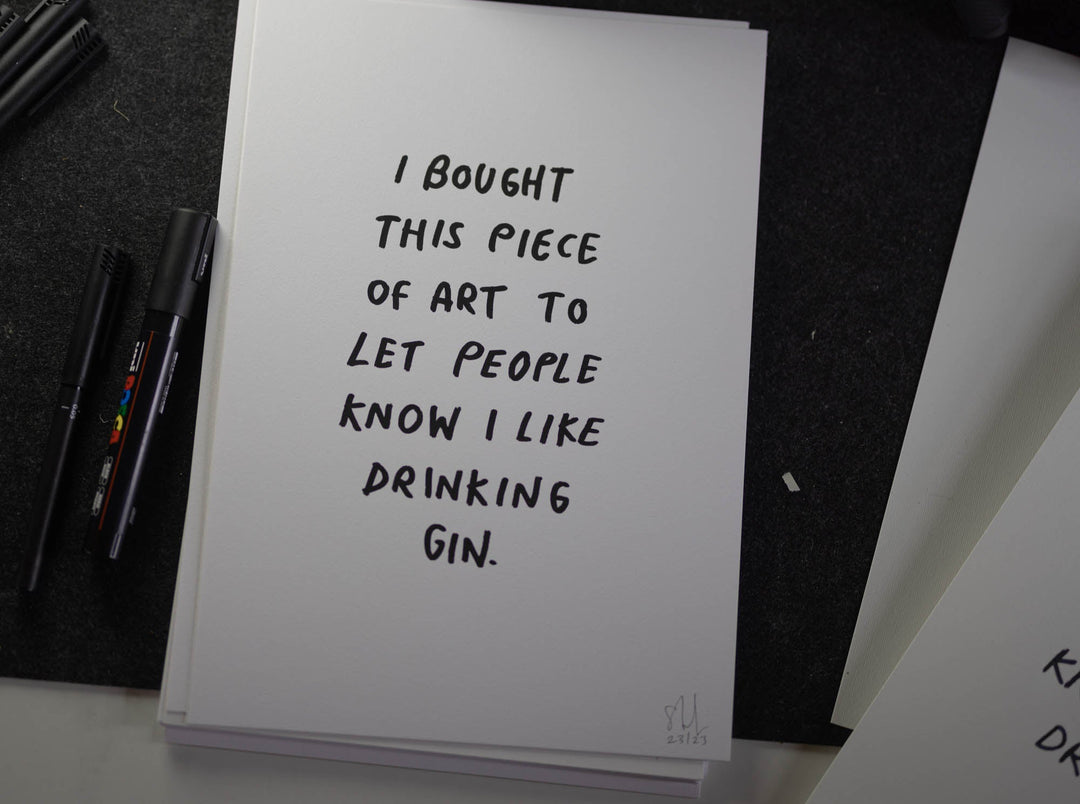 I BOUGHT
THIS PIECE
OF ART TO
LET PEOPLE
KNOW I LIKE
DRINKING
GIN.
23/23
uni
POSCA
K
DR